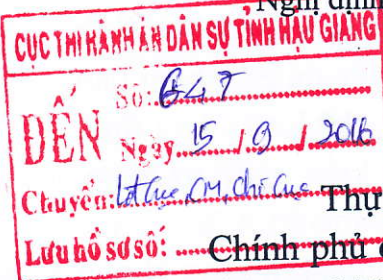 Nghị định
CỤC THI HÀNH ÁN DÂN SỰ TỈNH HẬU GIANG
ĐẾN
Số: 647
Ngày 15 / 9 / 2016
Chuyển: CM, Chi Cục
Thự
Lưu hồ sơ số:
Chính phủ